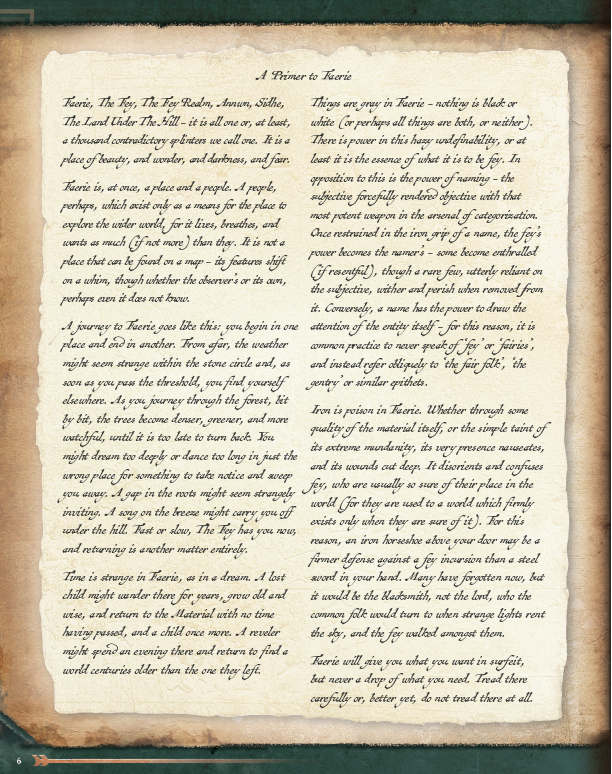 A Primer to Faerie
Faerie, The Fey, The Fey Realm, Annwn, Sidhe,
The Land Under The Hill – it is all one or, at least,
a thousand contradictory splinters we call one. It is a
place of beauty, and wonder, and darkness, and fear.
Faerie is, at once, a place and a people. A people,
perhaps, which exist only as a means for the place to
explore the wider world, for it lives, breathes, and
wants as much (if not more) than they. It is not a
place that can be found on a map – its features shift
on a whim, though whether the observer's or its own,
perhaps even it does not know.
A journey to Faerie goes like this: you begin in one
place and end in another. From afar, the weather
might seem strange within the stone circle and, as
soon as you pass the threshold, you find yourself
elsewhere. As you journey through the forest, bit
by bit, the trees become denser, greener, and more
watchful, until it is too late to turn back. You
might dream too deeply or dance too long in just the
wrong place for something to take notice and sweep
you away. A gap in the roots might seem strangely
inviting. A song on the breeze might carry you off
under the hill. Fast or slow, The Fey has you now,
and returning is another matter entirely.
Time is strange in Faerie, as in a dream. A lost
child might wander there for years, grow old and
wise, and return to the Material with no time
having passed, and a child once more. A reveler
might spend an evening there and return to find a
world centuries older than the one they left.
Things are gray in Faerie – nothing is black or
white (or perhaps all things are both, or neither).
There is power in this hazy undefinability, or at
least it is the essence of what it is to be fey. In
opposition to this is the power of naming – the
subjective forcefully rendered objective with that
most potent weapon in the arsenal of categorization.
Once restrained in the iron grip of a name, the fey's
power becomes the namer's – some become enthralled
(if resentful), though a rare few, utterly reliant on
the subjective, wither and perish when removed from
it. Conversely, a name has the power to draw the
attention of the entity itself – for this reason, it is
common practice to never speak of 'fey' or 'fairies',
and instead refer obliquely to 'the fair folk', 'the
gentry' or similar epithets.
Iron is poison in Faerie. Whether through some
quality of the material itself, or the simple taint of
its extreme mundanity, its very presence nauseates,
and its wounds cut deep. It disorients and confuses
fey, who are usually so sure of their place in the
world (for they are used to a world which firmly
exists only when they are sure of it). For this
reason, an iron horseshoe above your door may be a
firmer defense against a fey incursion than a steel
sword in your hand. Many have forgotten now, but
it would be the blacksmith, not the lord, who the
common folk would turn to when strange lights rent
the sky, and the fey walked amongst them.
Faerie will give you what you want in surfeit,
but never a drop of what you need. Tread there
carefully or, better yet, do not tread there at all.
6